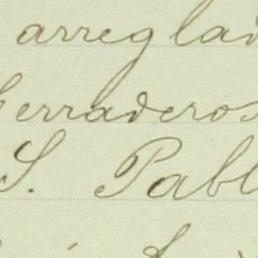 arreglad
Herraderos
S. Pabl